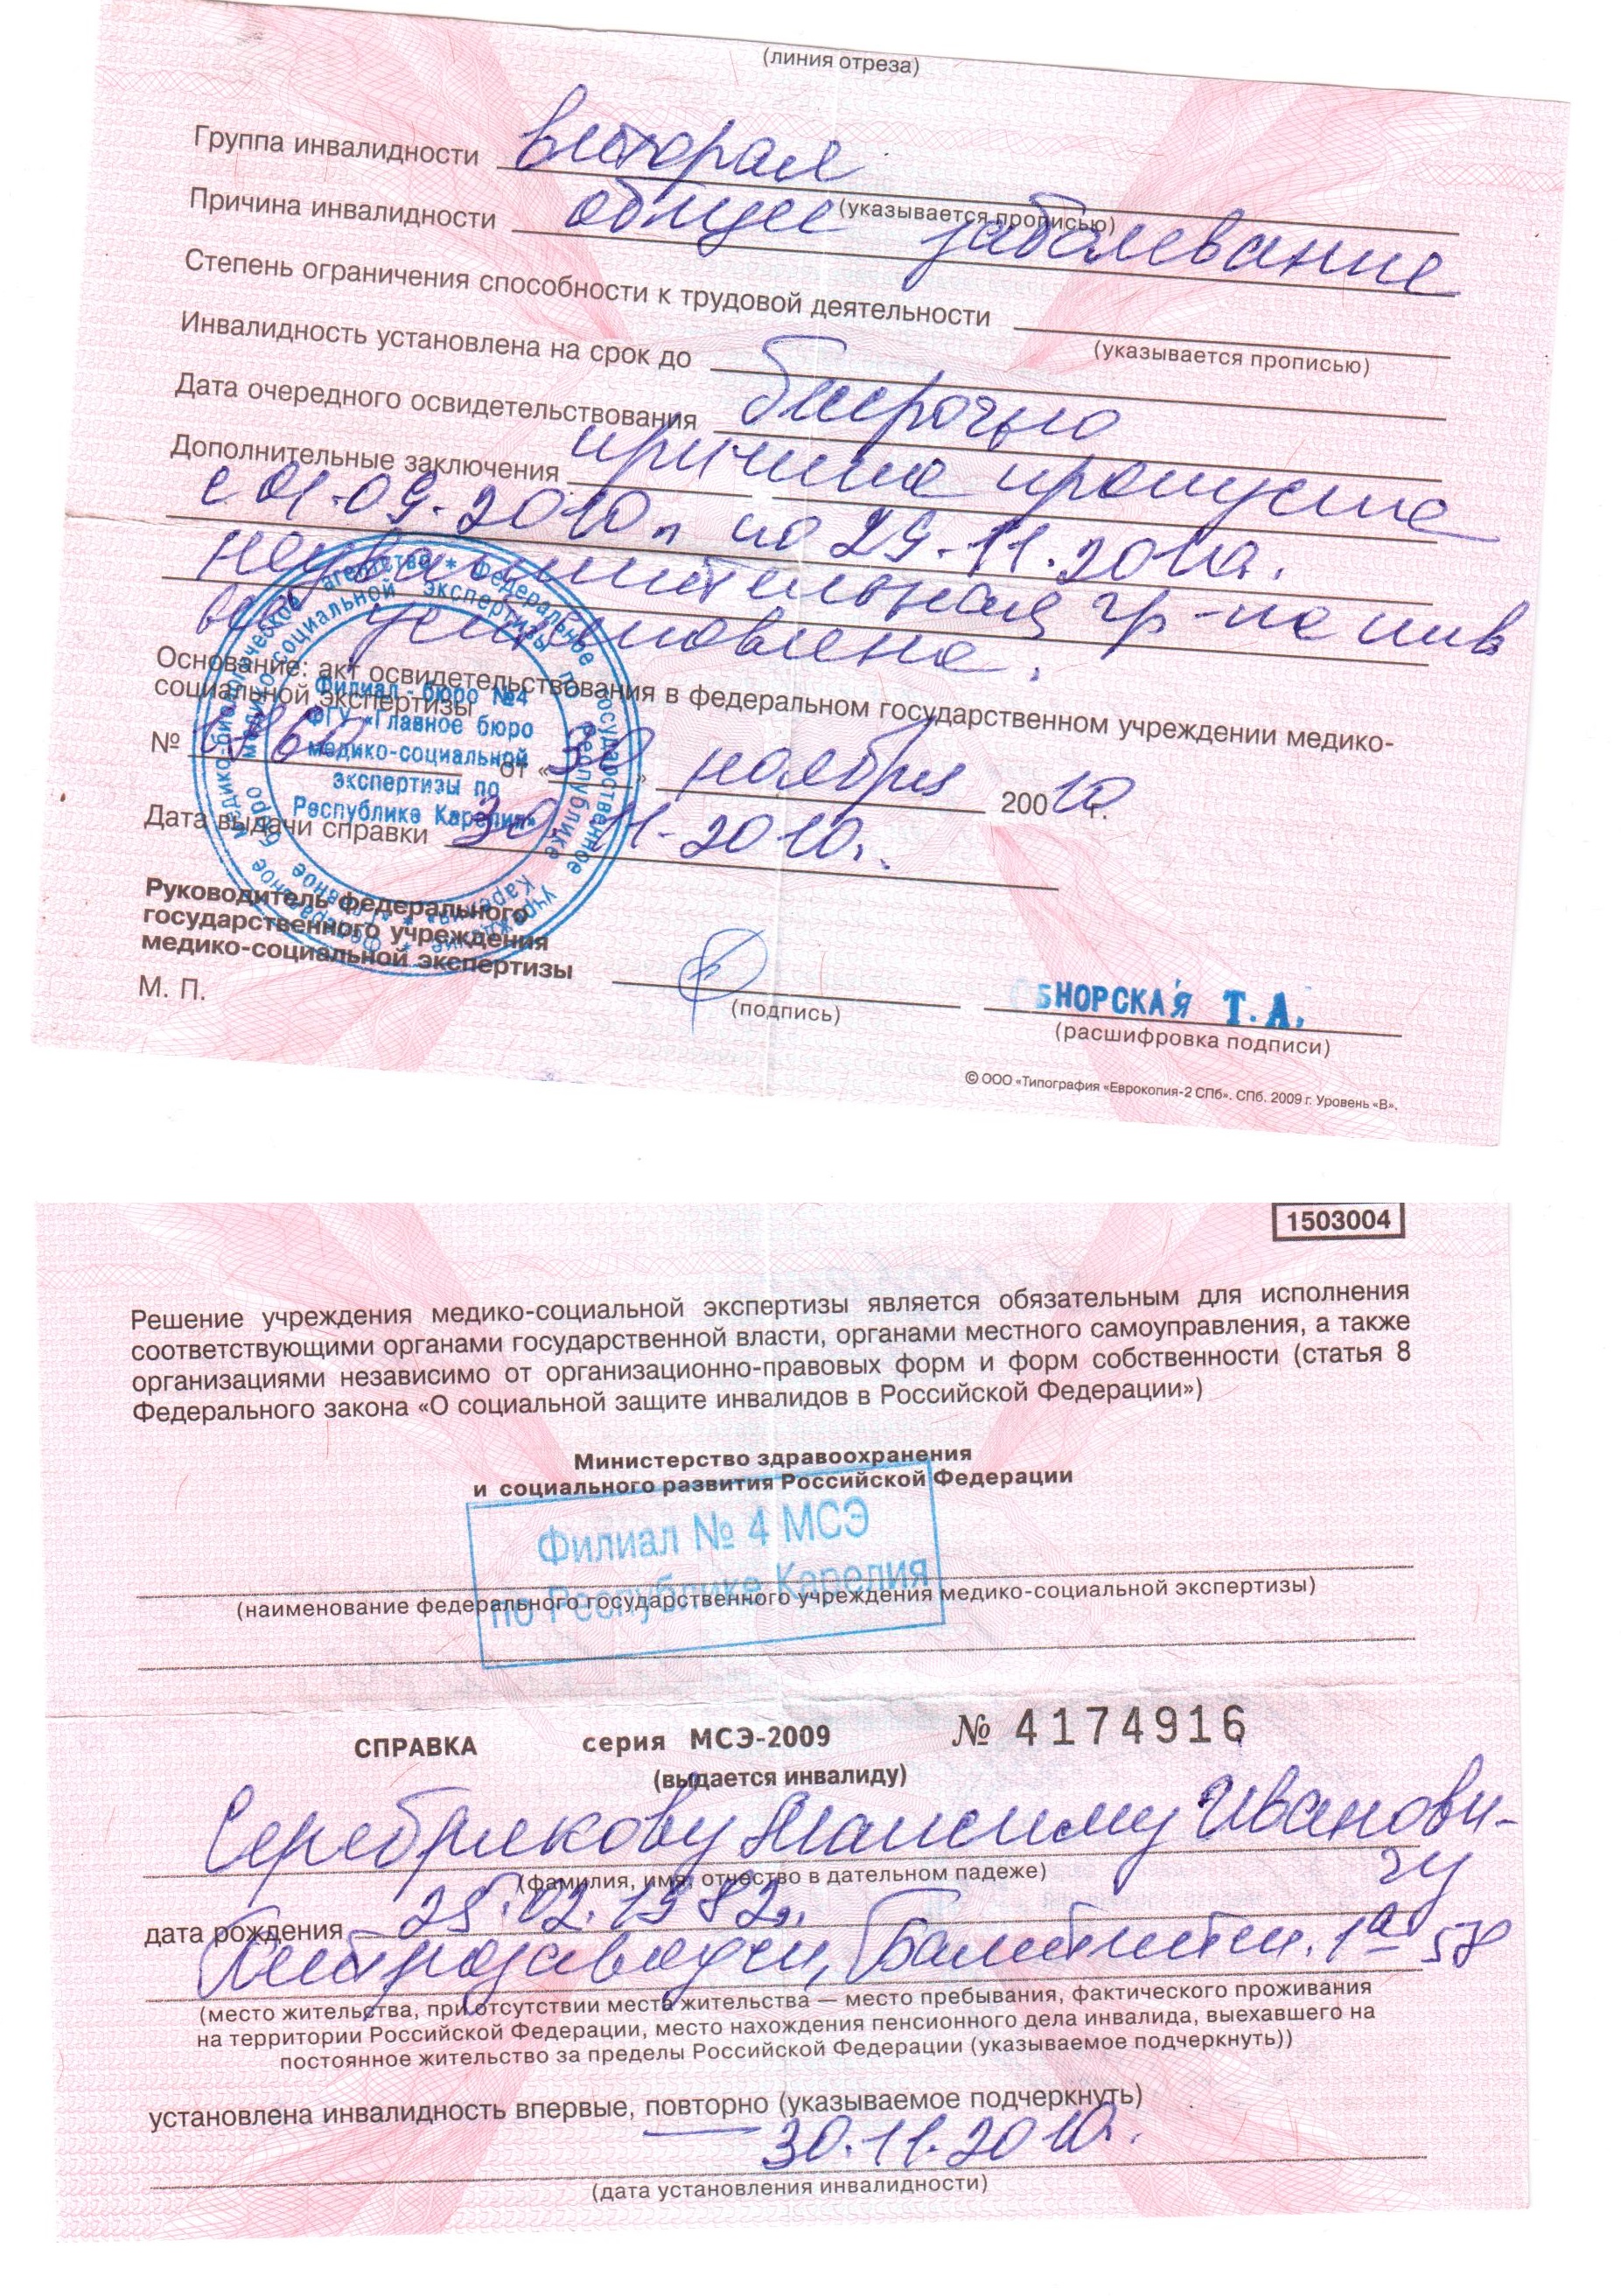 (линия отреза)
Группа инвалидности вторая
(указывается прописью)
Причина инвалидности общее заболевание
Степень ограничения способности к трудовой деятельности
(указывается прописью)
Инвалидность установлена на срок до
Дата очередного освидетельствования бессрочно
Дополнительные заключения причина пропуска
с 01.09.2010г по 29.11.2010г.
неуважительная гр-па инв
установлена.
Основание: акт освидетельствования в федеральном государственном учреждении медико-
социальной экспертизы
№ от «30» ноября 2010 г.
Дата выдачи справки 30.11.2010г.
Филиал - бюро №4
ФГУ «Главное бюро
медико-социальной
экспертизы по
Республике Карелия»
Руководитель федерального
государственного учреждения
медико-социальной экспертизы
М. П.
(подпись)
ОБНОРСКАЯ Т.А.
(расшифровка подписи)
© ООО «Типография «Еврокопия-2 СПб». СПб. 2009 г. Уровень «В».
1503004
Решение учреждения медико-социальной экспертизы является обязательным для исполнения
соответствующими органами государственной власти, органами местного самоуправления, а также
организациями независимо от организационно-правовых форм и форм собственности (статья 8
Федерального закона «О социальной защите инвалидов в Российской Федерации»)
Министерство здравоохранения
и социального развития Российской Федерации
Филиал № 4 МСЭ
по Республике Карелия
(наименование федерального государственного учреждения медико-социальной экспертизы)
СПРАВКА серия МСЭ-2009 № 4174916
(выдается инвалиду)
Серебрякову Максиму Иванови-
чу
(фамилия, имя, отчество в дательном падеже)
дата рождения 25.02.1982г.
Петрозаводск, 1а 58
(место жительства, при отсутствии места жительства — место пребывания, фактического проживания
на территории Российской Федерации, место нахождения пенсионного дела инвалида, выехавшего на
постоянное жительство за пределы Российской Федерации (указываемое подчеркнуть))
установлена инвалидность впервые, повторно (указываемое подчеркнуть)
30.11.2010г.
(дата установления инвалидности)